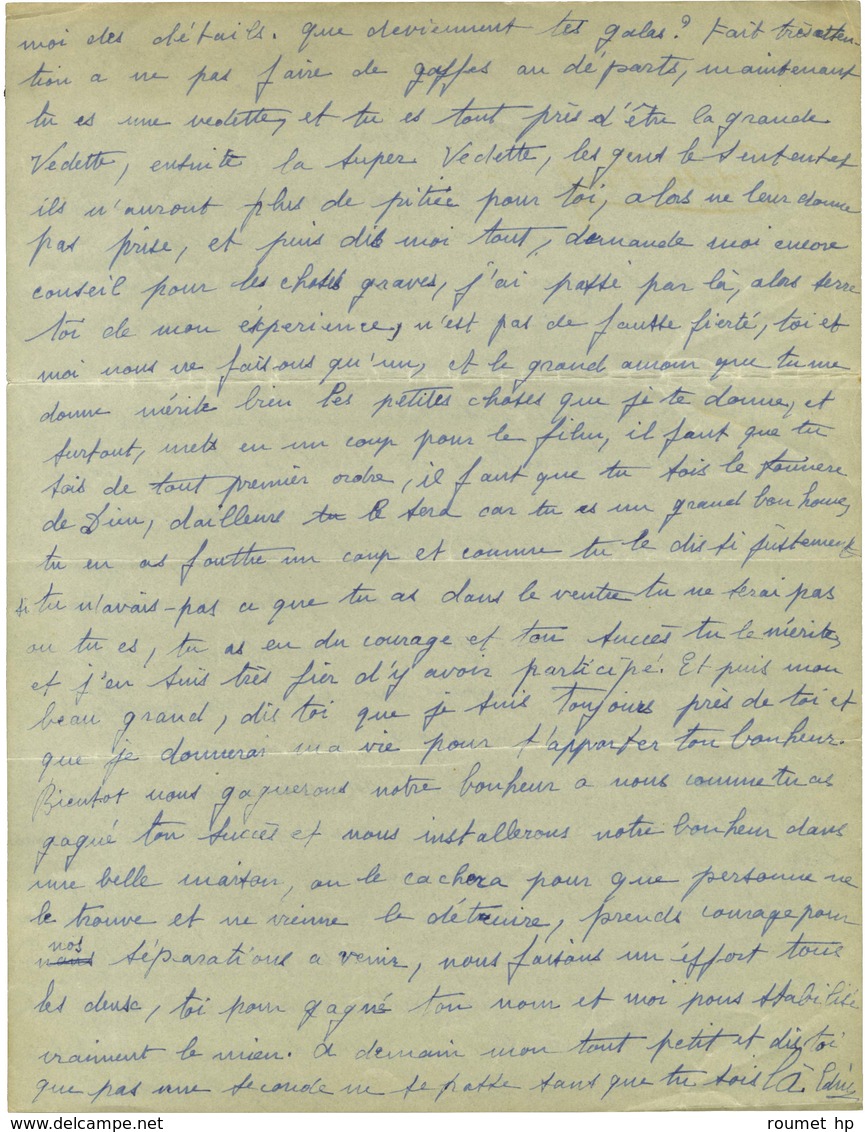 moi des détails. que deviennent tes galas? Fait très atten-
tion a ne pas faire de gaffes au départs, maintenant
tu es une vedette, et tu es tout près d'être la grande
Vedette, ensuite la super Vedette, les gens le sentent et
ils n'auront plus de pitiée pour toi, alors ne leur donne
pas prise, et puis dis moi tout, demande moi encore
conseil pour les choses graves, j'ai passé par là, alors serre
toi de mon éxperience, n'est pas de fausse fierté, toi et
moi nous ne faisons qu'un, et le grand amour que tu me
donne mérite bien les petites choses que je te donne, et
surtout, mets en un coup pour le film, il faut que tu
sois de tout premier ordre, il faut que tu sois le tonnere
de Dieu, dailleurs tu le sera car tu es un grand bonhome,
tu en as fouttu un coup et comme tu le dis si justement
si tu n'avais-pas ce que tu as dans le ventre tu ne serai pas
ou tu es, tu as eu du courage et ton succès tu le mérite,
et j'en suis très fier d'y avoir participé. Et puis mon
beau grand, dis toi que je suis toujours près de toi et
que je donnerai ma vie pour t'apporter ton bonheur.
Bientot nous gagnerons notre bonheur a nous comme tu as
gagué ton succès et nous installerons notre bonheur dans
une belle maison, on le cachera pour que personne ne
le trouve et ne vienne le détruire, prends courage pour
nos séparations a venir, nous faisons un éffort tous
les deux, toi pour gagné ton nom et moi pour stabilisé
vraiment le mien. A demain mon tout petit et dis toi
que pas une seconde ne se passe sans que tu sois là. Edith
roumet hp